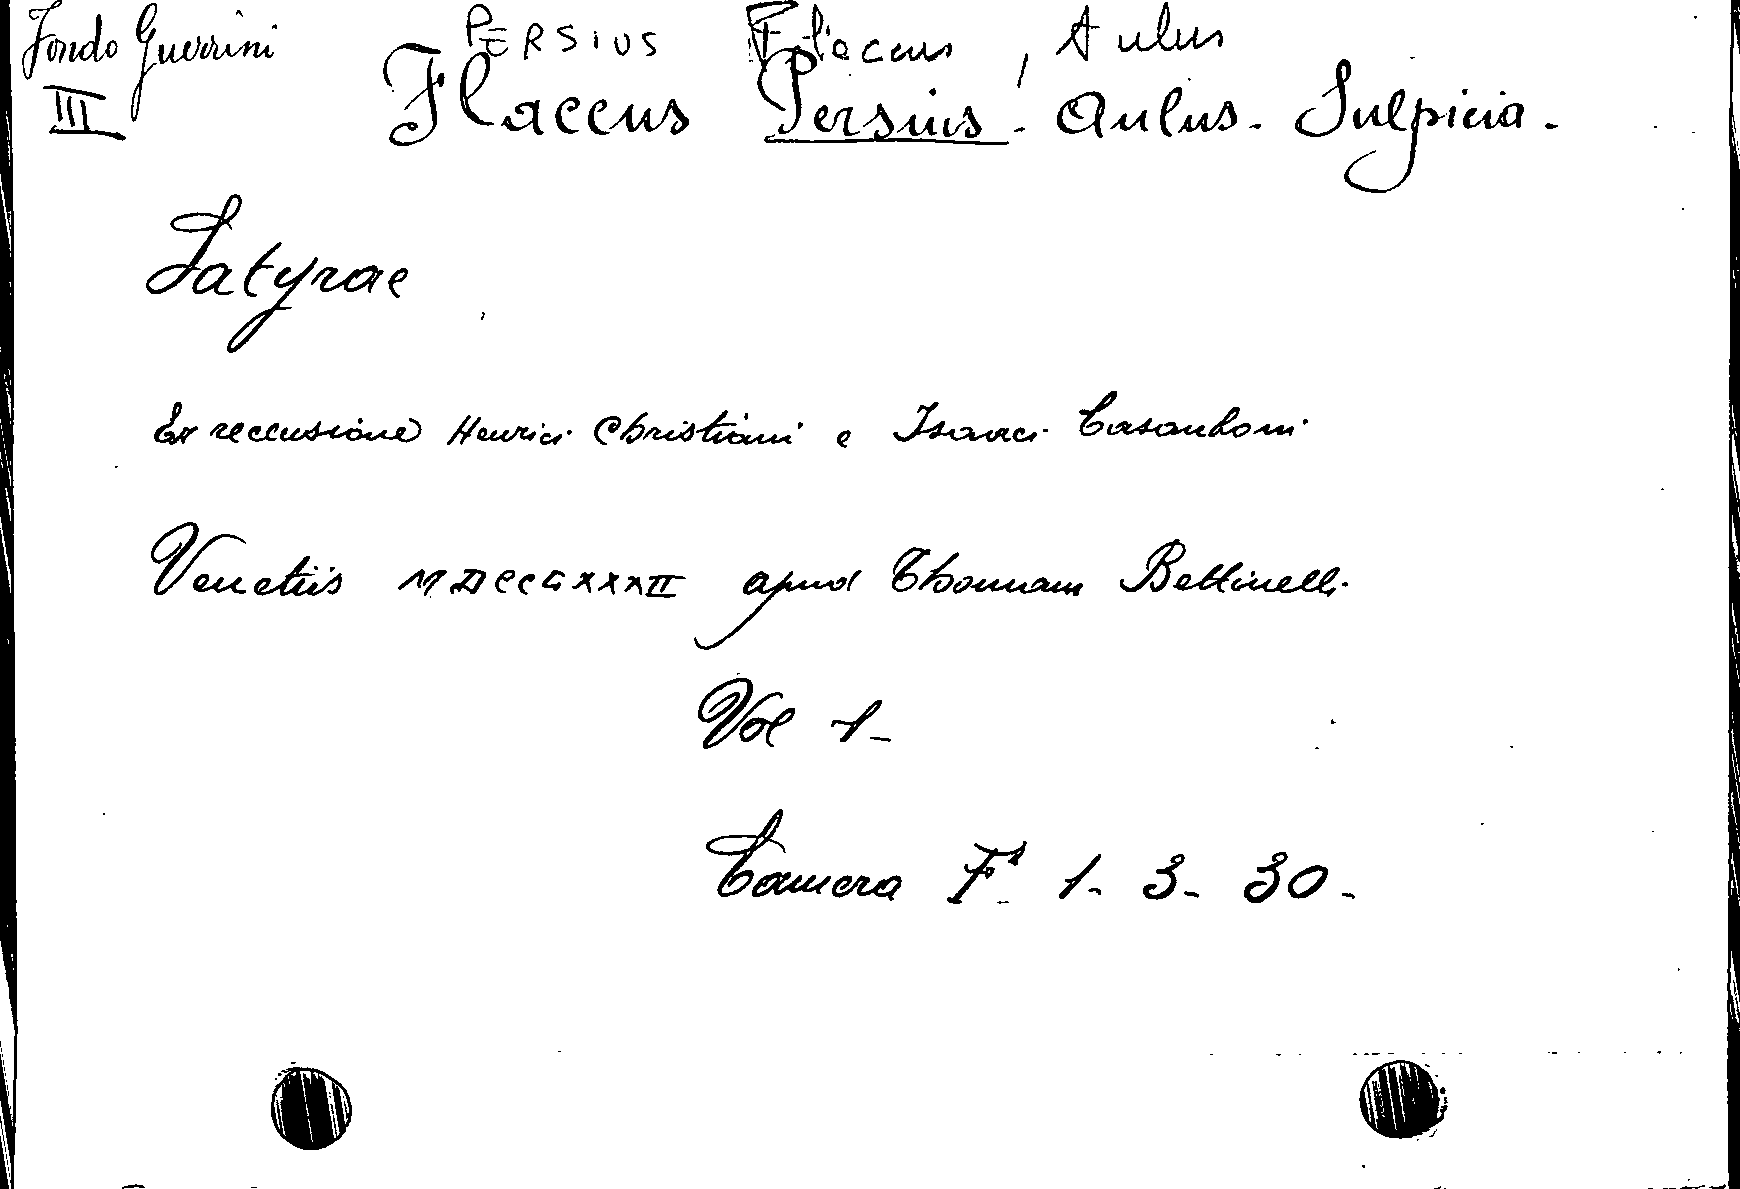 Fondo Guerrini
III
PERSIUS Flaccus, Aulus
Flaccus Persius. Aulus. Sulpicia.
Satyrae
Ex reccusione Henrici Christiani e Isaaci Casauboni
Venetiis MDCCLXXXII apud Thomam Bettinelli
Vol 1-
Camera Fª 1- 3- 30-